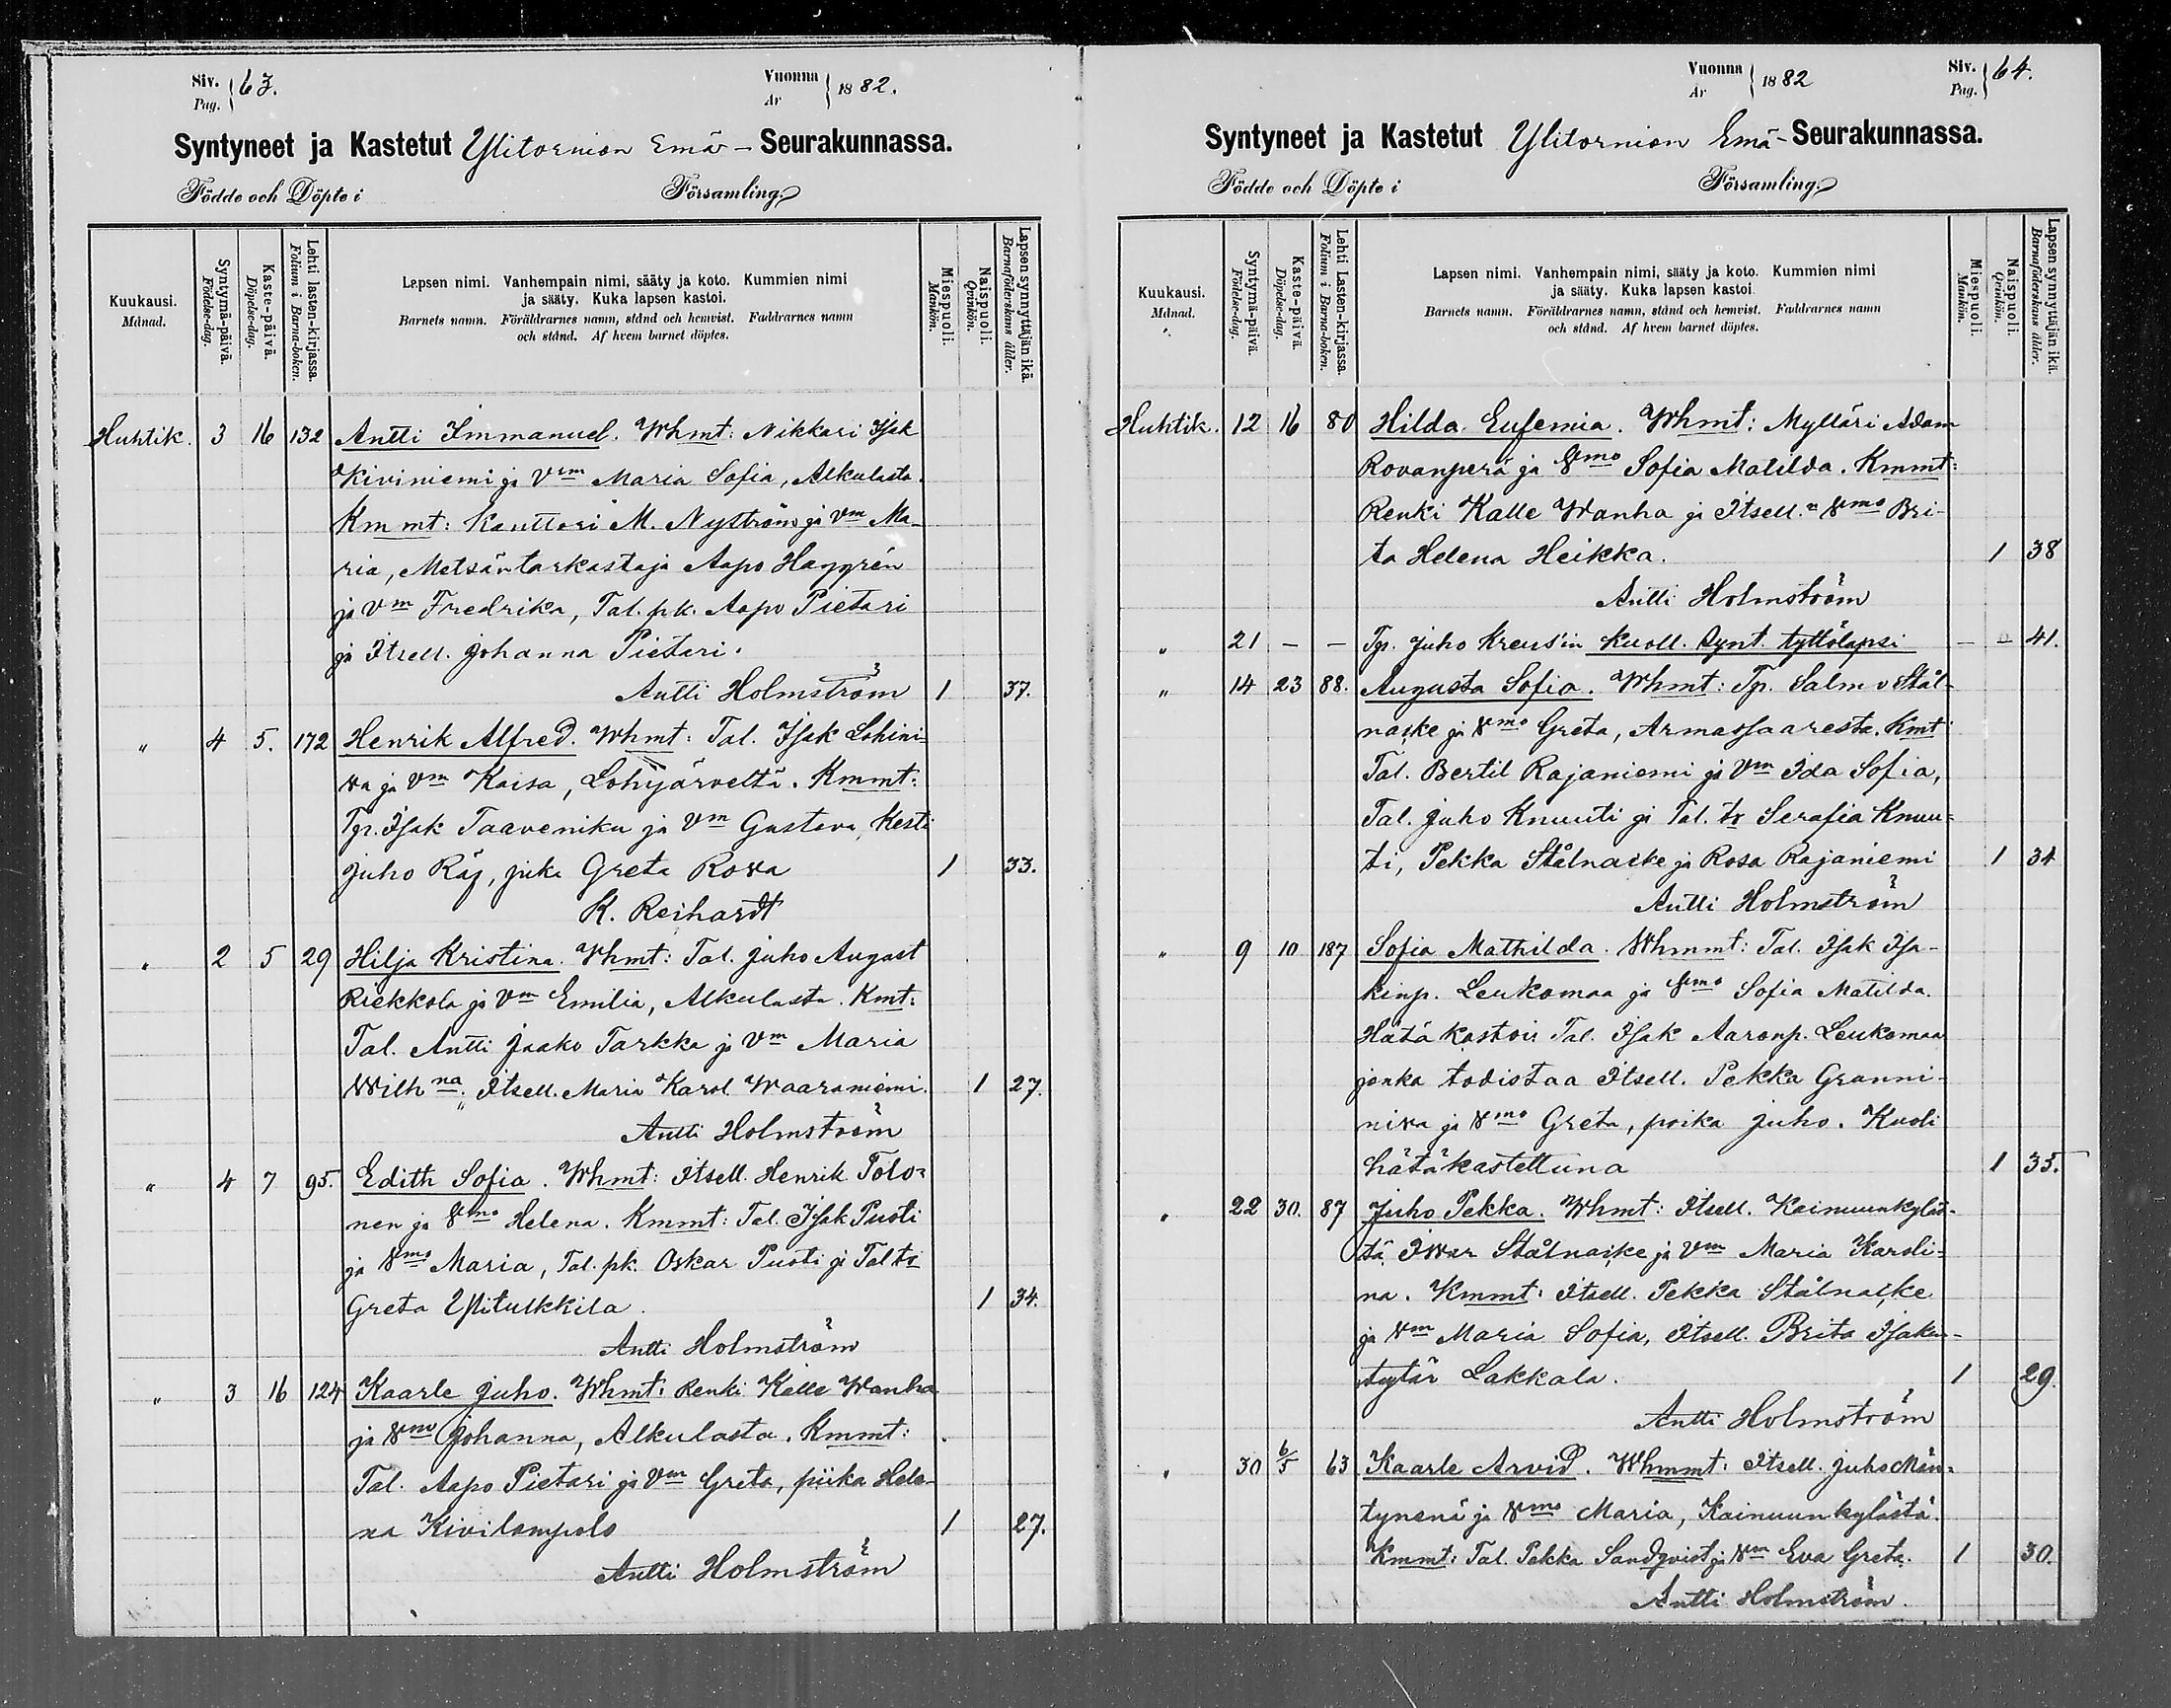 Siv. Pag. 63.
Vuonna År 1882.
Syntyneet ja Kastetut Ylitornion Emä- Seurakunnassa.
Födde och Döpte i Församling.
Kuukausi. Månad.
Syntymä-päivä. Födelse-dag.
Kaste-päivä. Döpelse-dag.
Lehti lasten-kirjassa. Folium i Barna-boken.
Lapsen nimi. Vanhempain nimi, sääty ja koto. Kummien nimi
ja sääty. Kuka lapsen kastoi.
Barnets namn. Föräldrarnes namn, stånd och hemvist. Faddrarnes namn
och stånd. Af hvem barnet döptes.
Miespuoli. Mankön.
Naispuoli. Qvinkön.
Lapsen synnyttäjän ikä. Barnaföderskans ålder.
Huhtik. 3 16 132 Antti Immanuel. Whmt: Nikkari Isak
Kiviniemi ja Vm Maria Sofia, Alkulasta.
Kmmt: Kanttori M. Nyström ja Vm Ma-
ria, Metsäntarkastaja Aapo Haggrén
ja Vm Fredrika, Tal. pk. Aapo Pietari
ja Itsell. Johanna Pietari.
Antti Holmström 1 37.
" 4 5. 172 Henrik Alfred. Whmt: Tal. Isak Lohini-
va ja Vm Kaisa, Lohijärveltä. Kmmt:
Tp. Isak Taaveniku ja Vm Gustava, Kesti
Juho Räj, piika Greta Rova 1 33.
K. Reihardt
" 2 5 29 Hilja Kristina. Whmt: Tal. Juho August
Riekkola ja Vm Emilia, Alkulasta. Kmt:
Tal. Antti Jaako Tarkka ja Vm Maria
Wilhna, Itsell. Maria Karol. Waaraniemi. 1 27.
Antti Holmström
" 4 7 95. Edith Sofia. Whmt: Itsell. Henrik Tolo-
nen ja Vmo Helena. Kmmt: Tal. Isak Puoti
ja Vmo Maria, Tal. pk. Oskar Puoti ja Tal tr
Greta Ylitulkkila. 1 34.
Antti Holmström
" 3 16 124 Kaarle Juho. Whmt: Renki Kalle Wanha
ja Vmo Johanna, Alkulasta. Kmmt:
Tal. Aapo Pietari ja Vm Greta, piika Hele-
na Kivilompolo 1 27.
Antti Holmström
Vuonna År 1882
Siv. Pag. 64.
Syntyneet ja Kastetut Ylitornion Emä- Seurakunnassa.
Födde och Döpte i Församling.
Kuukausi. Månad.
Syntymä-päivä. Födelse-dag.
Kaste-päivä. Döpelse-dag.
Lehti Lasten-kirjassa. Folium i Barna-boken.
Lapsen nimi. Vanhempain nimi, sääty ja koto. Kummien nimi
ja sääty. Kuka lapsen kastoi
Barnets namn. Föräldrarnes namn, stånd och hemvist. Faddrarnes namn
och stånd. Af hvem barnet döptes.
Miespuoli. Mankön.
Naispuoli. Qvinkön.
Lapsen synnyttäjän ikä. Barnaföderskans ålder.
Huhtik. 12 16 80 Hilda Eufemia. Whmt: Mylläri Adam
Rovanperä ja Vmo Sofia Matilda. Kmmt:
Renki Kalle Wanha ja Itsell. Vmo Bri-
ta Helena Heikka. 1 38
Antti Holmström
" 21 – – Tp. Juho Kreus'in kuoll. synt. tyttölapsi – 41.
" 14 23 88. Augusta Sofia. Whmt: Tp. Salm. Stål-
nacke ja Vmo Greta, Armassaaresta. Kmt
Tal. Bertil Rajaniemi ja Vm Ida Sofia,
Tal. Juho Knuuti ja Tal. tr Serafia Knuu-
ti, Pekka Stålnacke ja Rosa Rajaniemi 1 34
Antti Holmström
" 9 10 187 Sofia Mathilda. Whmmt: Tal. Isak Isa-
kinp. Leukomaa ja Vmo Sofia Matilda.
Hätäkastoi Tal. Isak Aaronp. Leukomaa
jonka todistaa Itsell. Pekka Granni-
niva ja Vmo Greta, poika Juho. Kuoli
hätäkastettuna 1 35.
" 22 30. 87 Juho Pekka. Whmt: Itsell. Kainuunkyläs-
tä Iwar Stålnacke ja Vm Maria Karoli-
na. Kmmt: Itsell. Pekka Stålnacke
ja Vm Maria Sofia, Itsell. Brita Isakin-
tytär Lakkala. 1 29.
Antti Holmström
" 30 6/5 63 Kaarle Arvid. Whmmt: Itsell. Juho Män-
tynenä ja Vmo Maria, Kainuunkylästä.
Kmmt: Tal. Pekka Sandqvist ja Vm Eva Greta. 1 30.
Antti Holmström.